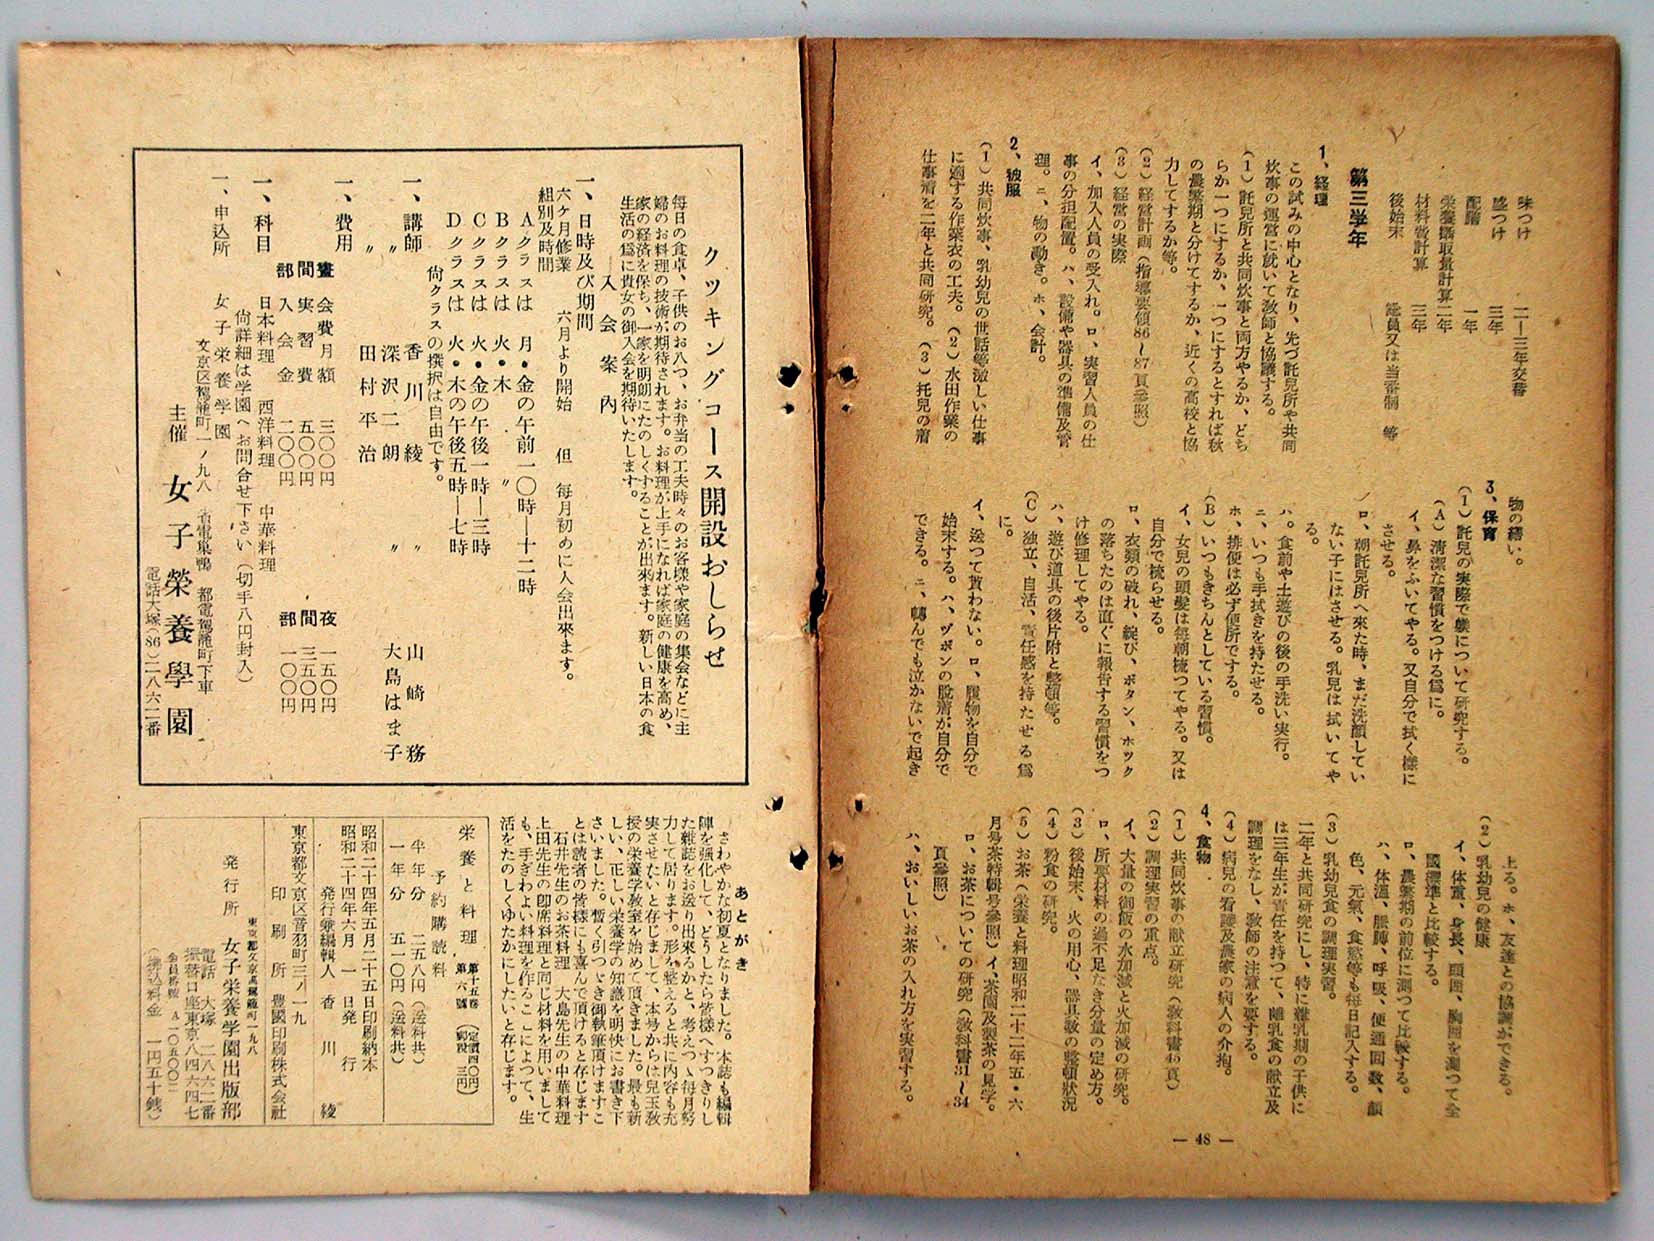 味つけ　二―三年交替
盛つけ　三年
配膳　一年
栄養攝取量計算二年
材料費計算　三年
後始末　総員又は当番制　等
第三学年
1、経理
この試みの中心となり、先づ託児所や共同
炊事の運営に就いて教師と協議する。
(1) 託児所と共同炊事と両方やるか、どち
らか一つにするか、一つにするとすれば秋
の農繁期と分けてするか、近くの高校と協
力してするか等。
(2) 経営計画（指導要領86～87頁参照）
(3) 経営の実際
イ、加入人員の受入れ。ロ、実習人員の仕
事の分担配置。ハ、設備や器具の準備及管
理。ニ、物の動き。ホ、会計。
2、被服
(1) 共同炊事、乳幼児の世話等激しい仕事
に適する作業衣の工夫。(2) 水田作業の
仕事着を二年と共同研究。(3) 托児の着
物の繕い。
3、保育
(1) 託児の実際で躾について研究する。
(A) 清潔な習慣をつける爲に。
イ、鼻をふいてやる。又自分で拭く様に
させる。
ロ、朝託児所へ來た時、まだ洗顔してい
ない子にはさせる。乳児は拭いてや
る。
ハ。食前や土遊びの後の手洗い実行。
ニ、いつも手拭きを持たせる。
ホ、排便は必ず便所でする。
(B) いつもきちんとしている習慣。
イ、女児の頭髪は毎朝梳つてやる。又は
自分で梳らせる。
ロ、衣類の破れ、綻び、ボタン、ホック
の落ちたのは直ぐに報告する習慣をつ
け修理してやる。
ハ、遊び道具の後片附と整頓等。
(C) 独立、自活、責任感を持たせる爲
に。
イ、送つて貰わない。ロ、履物を自分で
始末する。ハ、ヅボンの脱着が自分で
できる。ニ、轉んでも泣かないで起き
上る。ホ、友達との協調ができる。
(2) 乳幼児の健康
イ、体重、身長、頭囲、胸囲を測つて全
國標準と比較する。
ロ、農繁期の前位に測つて比較する。
ハ、体溫、脈膊、呼吸、便通回数、顏
色、元氣、食慾等も毎日記入する。
(3) 乳幼児食の調理実習。
二年と共同研究にし、特に離乳期の子供に
は三年生が責任を持つて、離乳食の献立及
調理をなし、教師の注意を要する。
(4) 病児の看護及農家の病人の介抱。
4、食物
(1) 共同炊事の献立研究（教科書45頁）
(2) 調理実習の重点。
イ、大量の御飯の水加減と火加減の研究。
ロ、所要材料の過不足なき分量の定め方。
(3) 後始末、火の用心、器具数の整頓狀況
(4) 粉食の研究。
(5) お茶（栄養と料理昭和二十二年五・六
月号茶特輯号参照）イ、茶園及製茶の見学。
ロ、お茶についての研究（教科書31～34
頁参照）
ハ、おいしいお茶の入れ方を実習する。
― 48 ―
クッキングコース開設おしらせ
入会案内
毎日の食卓、子供のお八つ、お弁当の工夫時々のお客様や家庭の集会などに主
婦のお料理の技術が期待されます。お料理が上手になれば家庭の健康を高め、
家の経済を保ち、一家を明朗にたのしくすることが出來ます。新しい日本の食
生活の爲に貴女の御入会を期待いたします。
一、日時及び期間
六ケ月修業　六月より開始　但　毎月初めに入会出來ます。
組別及時間
Aクラスは　月・金の午前一〇時―十二時
Bクラスは　火・木　〃
Cクラスは　火・金の午後一時―三時
Dクラスは　火・木の午後五時―七時
尙クラスの撰択は自由です。
一、講師　香川綾　〃　山崎務
〃　深沢二朗　〃　大島はま子
田村平治
一、費用
晝間部　会費月額　三〇〇円　夜間部　一五〇円
実習費　五〇〇円　三五〇円
入会金　二〇〇円　一〇〇円
一、科目　日本料理　西洋料理　中華料理
尙詳細は学園へお問合せ下さい（切手八円封入）
一、申込所　女子栄養学園
文京区駕籠町一ノ九八　省電巣鴨　都電駕籠町下車
主催　女子榮養學園
電話大塚(86)二八六二番
あとがき
さわやかな初夏となりました。本誌も編輯
陣を强化して、どうしたら皆様へすつきりし
た雜誌をお送り出來るかと、考えつゝ毎月努
力して居ります。形を整えると共に内容も充
実させたいと存じまして、本号からは兒玉教
授の栄養学教室を始めて頂きました。最も新
しい、正しい栄養学の知識を明快にお書き下
さいました。暫く引つゞき御執筆頂けますこ
とは読者の皆様にも喜んで頂けると存じます
石井先生のお茶料理　大島先生の中華料理
上田先生の卽席料理と同じ材料を用いまして
も、手ぎわよい料理を作ることによつて、生
活をたのしくゆたかにしたいと存じます。
栄養と料理　第十五卷　第六號　（定價四〇円）（郵税　三円）
予約購読料
半年分　二五八円（送料共）
一年分　五一〇円（送料共）
昭和二十四年五月二十五日印刷納本
昭和二十四年六月一日発行
発行兼編輯人　香川綾
東京都文京区音羽町三ノ一九
印刷所　豊國印刷株式会社
東京都文京区駕籠町一九八
発行所　女子栄養学園出版部
電話　大塚　二八六二番
振替口座東京八四六四七
会員番號　A一〇五〇〇二
（振込料金　一円五十銭）